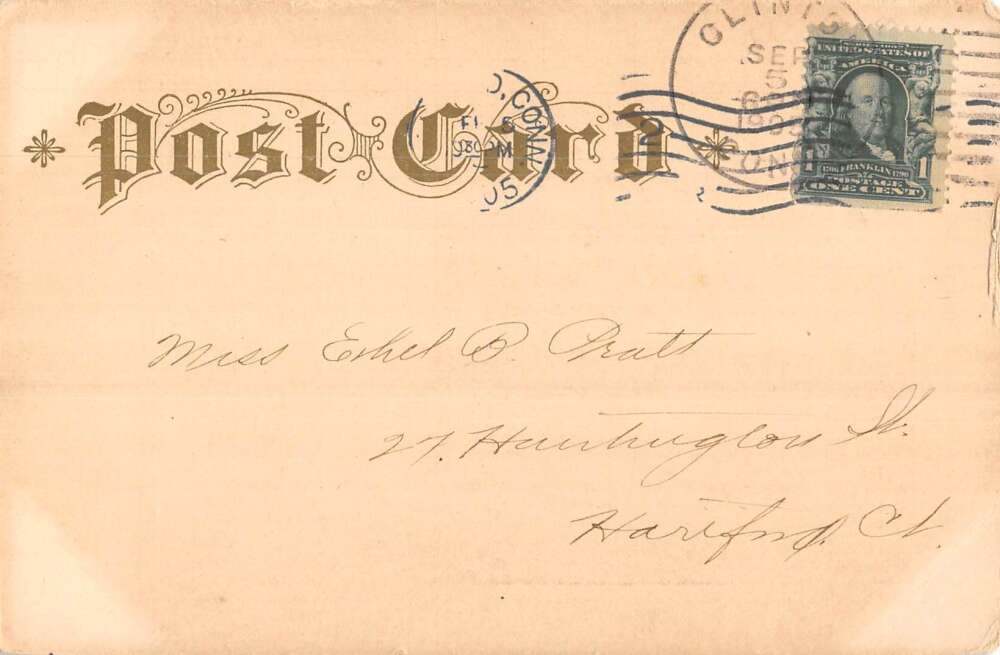 Post Card
CLINTO
SEP
5
CONN.
05
UNITED STATES OF
AMERICA
1706 FRANKLIN 1790
POSTAGE
1
ONE CENT
Miss Ethel B. Pratt
27. Huntington St.
Hartford. Ct.